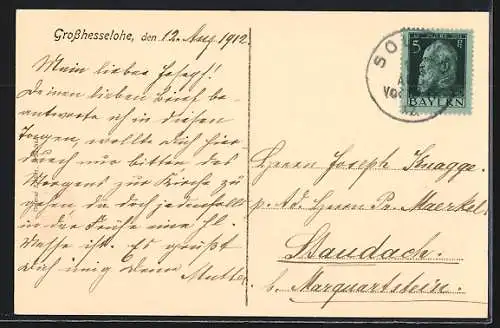 Großhesselohe, den 12. Aug. 1912.
Mein lieber Josef!
Deinen lieben Brief be-
antworte ich in diesen
Tagen, wollte dich hier-
durch nur bitten des
Morgens zur Kirche zu
gehen da doch jedenfalls
in der Frühe eine hl.
Messe ist. Es grüßt
Dich innig Deine Mutter.
SO
VO
5 Pf
BAYERN
Herrn Joseph Knagge.
p. Ad. Herrn Pr. Maerkel
Staudach.
b. Marquartstein.